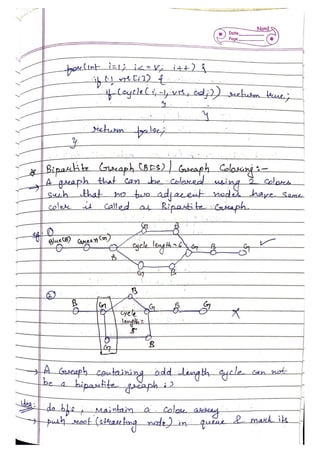 Date
Page
for(int i=1; i<=V; i++) {
if(!vis[i]) {
if(cycle(i,-1,vis,adj)) return true;
}
}
return false;
}
* Bipartite Graph (BFS) | Graph Coloring :-
→ A graph that can be colored using 2 colors
such that no two adjacent nodes have same
color is called as Bipartite Graph.
eg ①
G B
Blue(B) Green(G)
cycle length = 6 G B G
B
G B
✓
②
B
B G G B G
cycle length = 5
×
G B
→ A Graph containing odd length cycle can not
be a bipartite graph :)
idea: do bfs, maintain a color array
→ push root (starting node) in queue & mark its